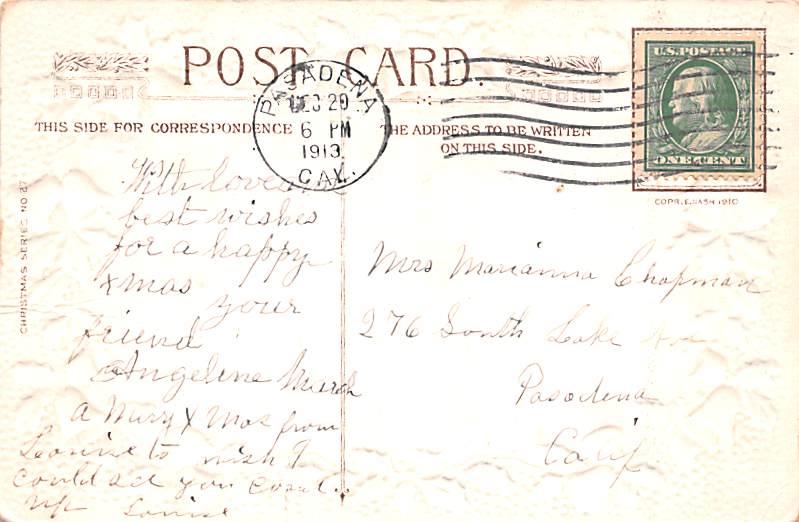 POST CARD.
U.S. POSTAGE
ONE CENT
PASADENA
DEC 20
6 PM
1913
CAL.
THIS SIDE FOR CORRESPONDENCE
THE ADDRESS TO BE WRITTEN
ON THIS SIDE.
COPR. E. NASH 1910
CHRISTMAS SERIES NO 27
With love
best wishes
for a happy
xmas
your
friend
Angeline March
a Mery X mas from
Louise to wish I
could see you
Louise
Mrs Marianna Chapman
276 South Lake Ave
Pasadena
Calif